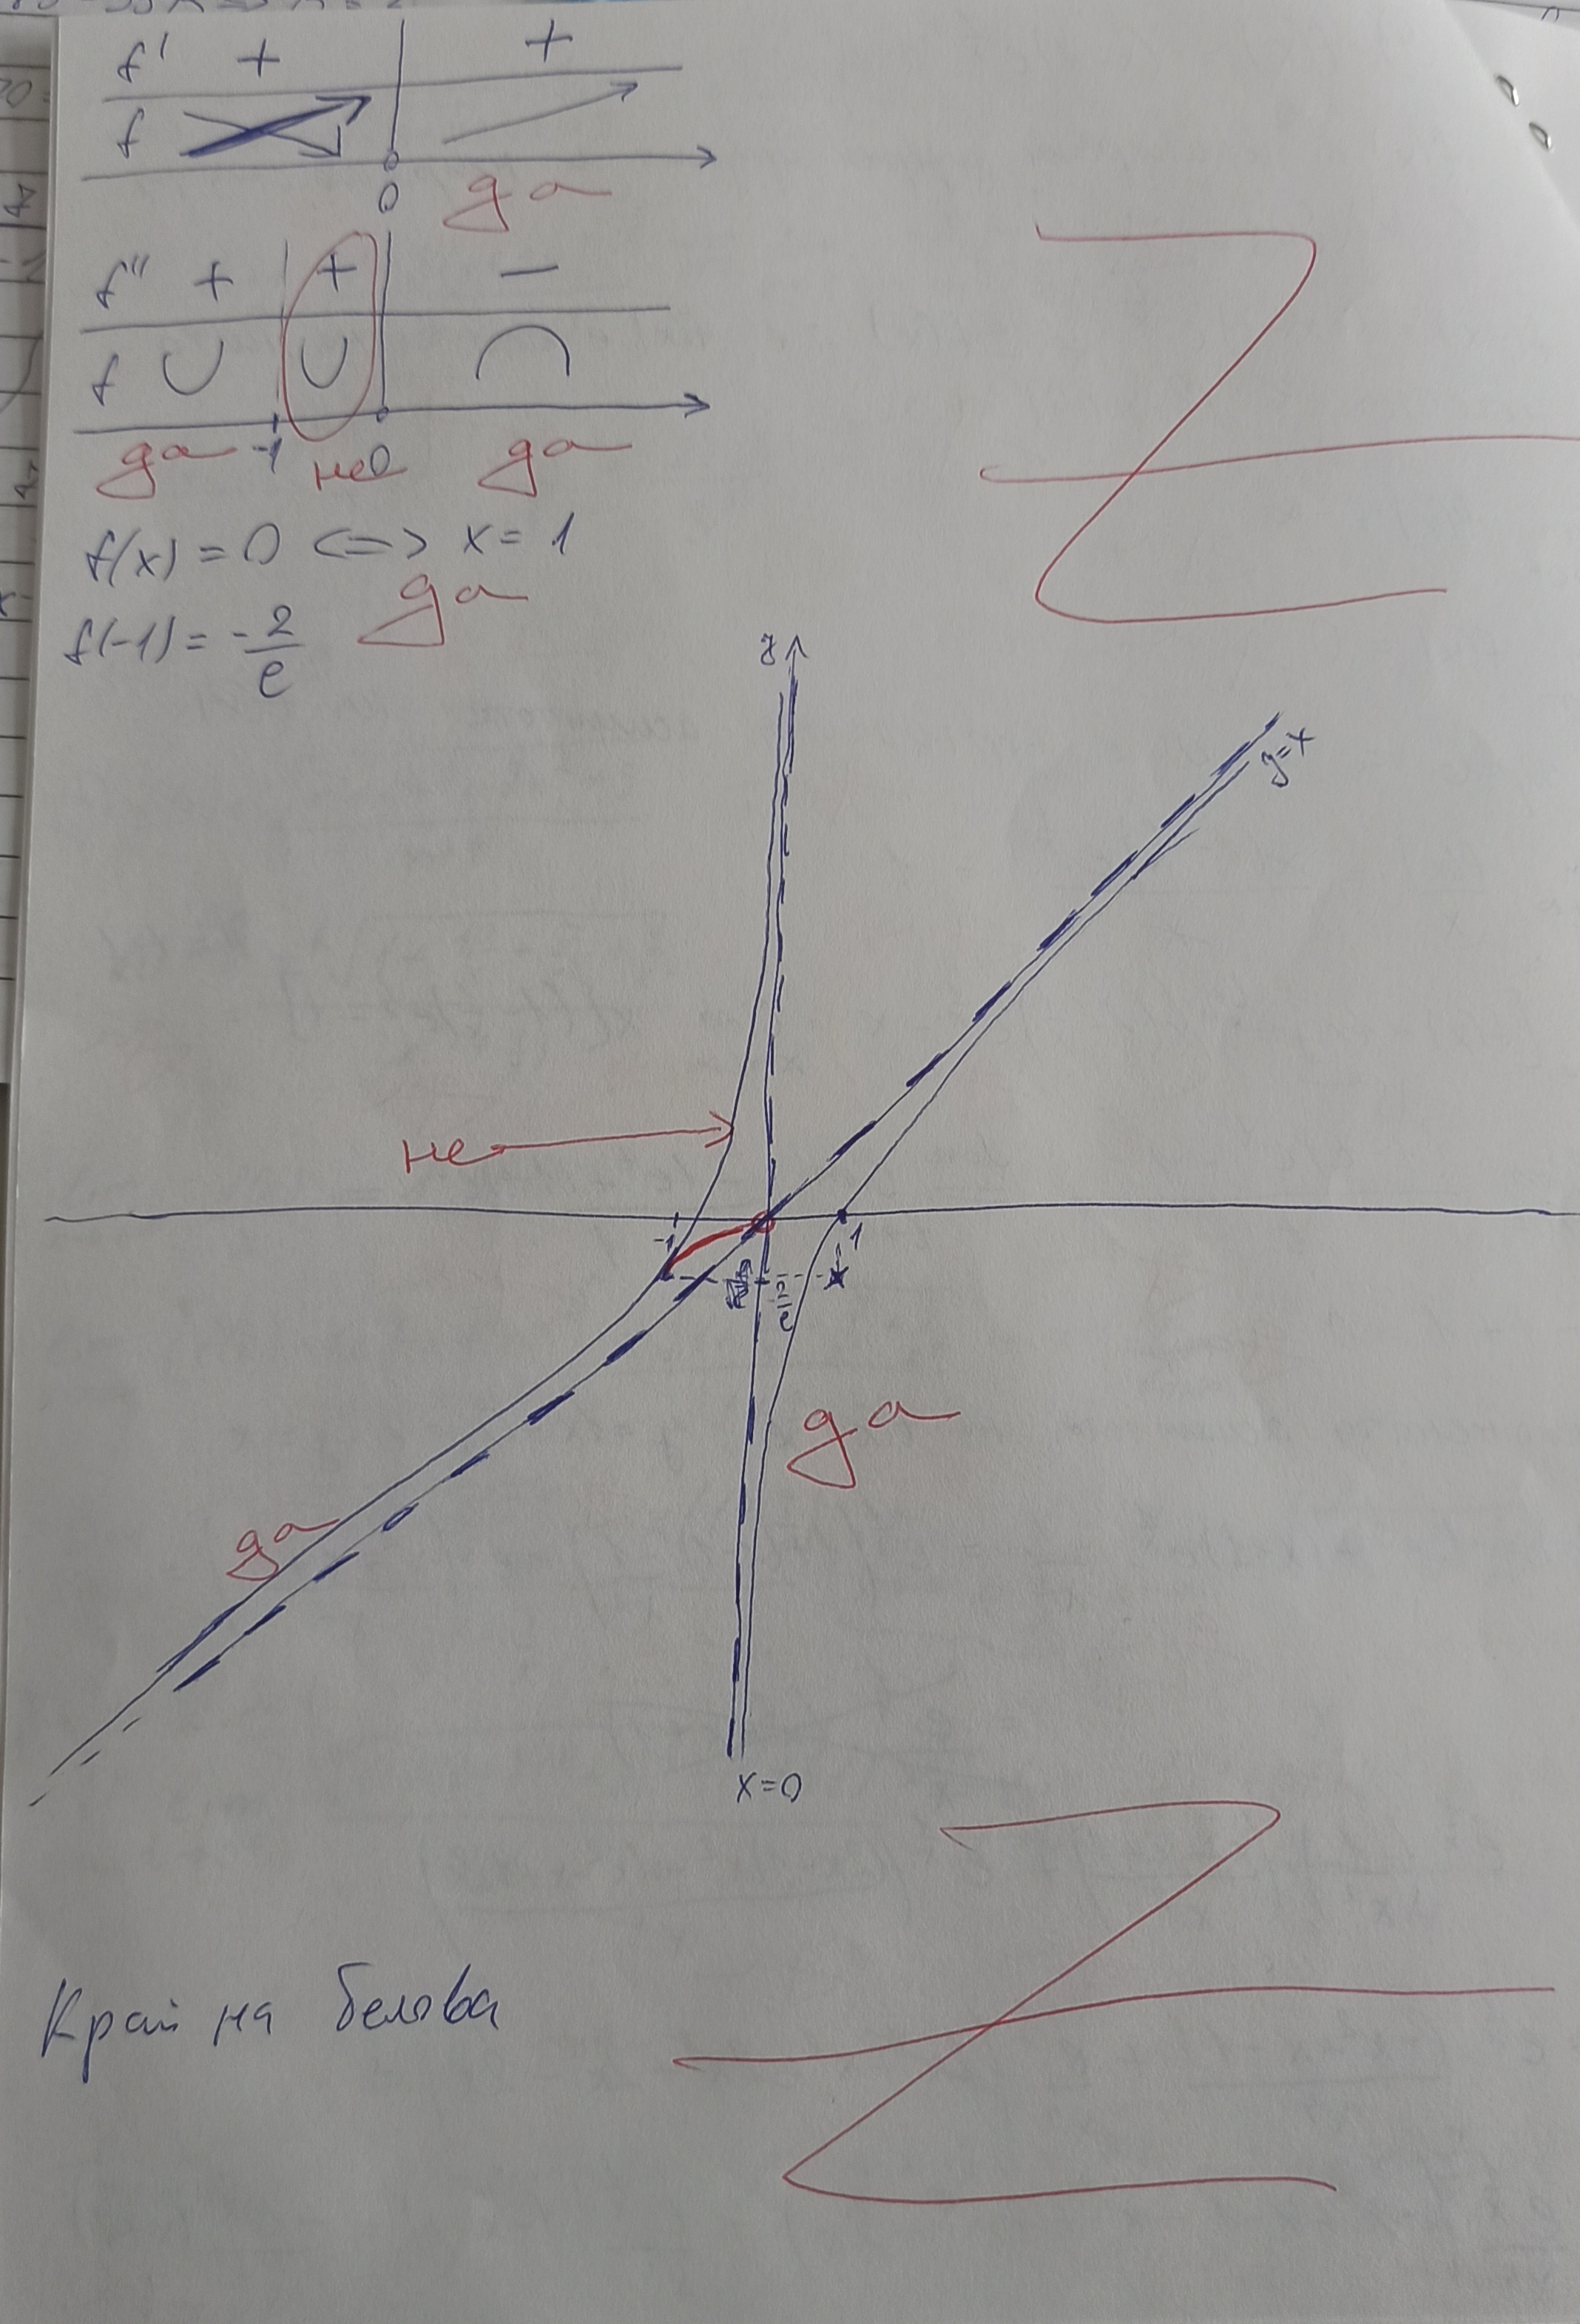 f' + +
f
0 да
f'' + + −
f ∪ ∪ ∩
да -1 не 0 да
f(x) = 0 <=> x = 1
да
f(-1) = -2/e
y
y=x
не
-1 1
-2/e
да
да
x=0
Край на белова